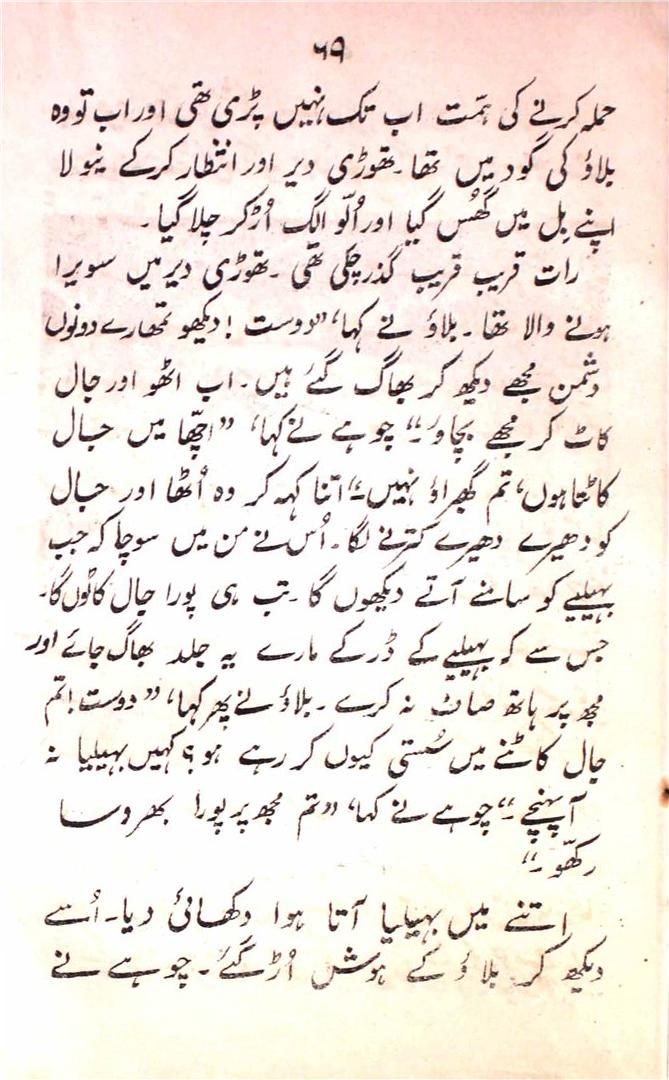 ۶۹
حملہ کرنے کی ہمّت اب تک نہیں پڑی تھی اور اب تو وہ
بلاؤ کی گود میں تھا۔ تھوڑی دیر اور انتظار کرکے نیولا
اپنے بِل میں گھُس گیا اور اُلّو الگ اُڑ کر چلا گیا۔
رات قریب قریب گذر چکی تھی۔ تھوڑی دیر میں سویرا
ہونے والا تھا۔ بلاؤ نے کہا، ”دوست! دیکھو تمھارے دونوں
دشمن مجھے دیکھ کر بھاگ گئے ہیں۔ اب اٹھو اور جال
کاٹ کر مجھے بچاوٴ۔“ چوہے نے کہا، ”اچھّا میں جال
کاٹتا ہوں، تم گھبراؤ نہیں۔“ اتنا کہہ کر وہ اُٹھا اور جال
کو دھیرے دھیرے کترنے لگا۔ اُس نے من میں سوچا کہ جب
بہیلیے کو سامنے آتے دیکھوں گا۔ تب ہی پورا جال کاٹوں گا۔
جس سے کہ بہیلیے کے ڈر کے مارے یہ جلد بھاگ جائے اور
مجھ پر ہاتھ صاف نہ کرے۔ بلاؤ نے پھر کہا، ”دوست! تم
جال کاٹنے میں سُستی کیوں کر رہے ہو؟ کہیں بہیلیا نہ
آپہنچے۔“ چوہے نے کہا، ”تم مجھ پر پورا بھروسا
رکھّو۔“
اتنے میں بہیلیا آتا ہوا دکھائی دیا۔ اُسے
دیکھ کر بلاؤ کے ہوش اُڑ گئے۔ چوہے نے